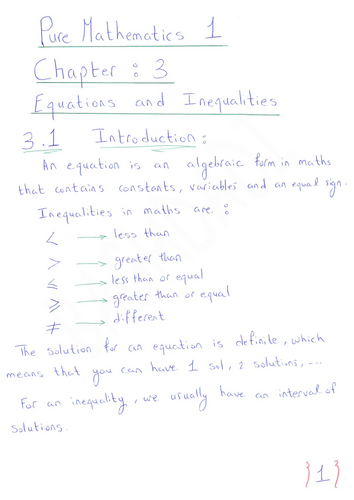 Pure Mathematics 1
Chapter : 3
Equations and Inequalities
3.1 Introduction :
An equation is an algebraic form in maths
that contains constants, variables and an equal sign.
Inequalities in maths are :
< → less than
> → greater than
≤ → less than or equal
≥ → greater than or equal
≠ → different
The solution for an equation is definite, which
means that you can have 1 sol, 2 solutions, ...
For an inequality, we usually have an interval of
solutions.
}1}